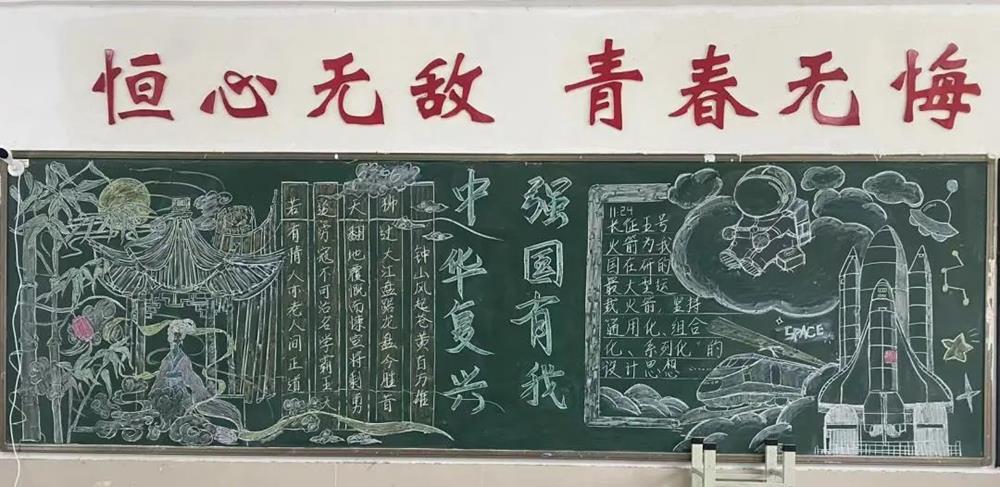 恒心无敌 青春无悔
钟山风起苍黄百万雄
师过大江虎踞龙盘今胜昔
天翻地覆慨而慷宜将剩勇
追穷寇不可沽名学霸王天
若有情人亦老人间正道
中华复兴
强国有我
11.24
长征五号
火箭为我
国在研的
最大型运
载火箭,坚持
通用化、组合
化、系列化"的
设计思想……
"SPACE"